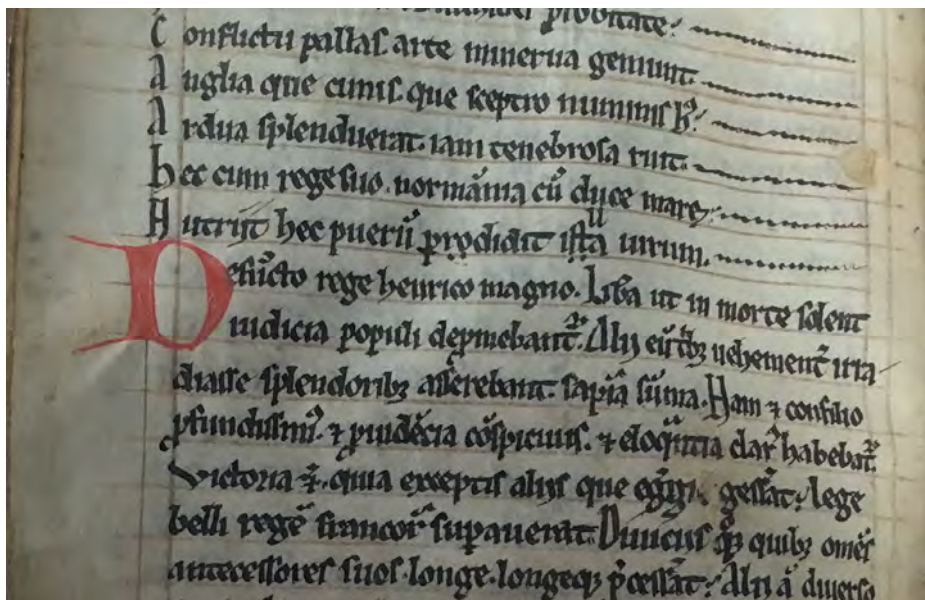 probitate:
Conflictu pallas. arte minerua gemunt.
Anglia que cunis. que sceptro numinis h᷒
Ardua splenduerat. iam tenebrosa ruit.
Hec cum rege suo. normānia cū duce marc᷒
Nutrijt hec puerū ꝓdidit ista uirum.
Defūcto rege henrico magno. Lib̄a ut in morte solent
iudicia populi depmebant᷑. Alij eū tⁱbꝫ uehement᷑ irra-
diasse splendoribꝫ asserebant. sapīa sūma. Nam ⁊ consilio
ꝓfundissimꝰ. ⁊ ꝓuidēcia cōspicuus. ⁊ eloq̄ntia clarꝰ habebat᷑.
Victoria ⁊. quia exceptis alijs que egͥgi. gess̄at: lege
belli regē francoꝝ suꝑauerat. Diuicijs qͦꝫ quibꝫ omēs
antecessores suos. longe. longeqꝫ p̄cess̄at: Alij aͫ diuerso